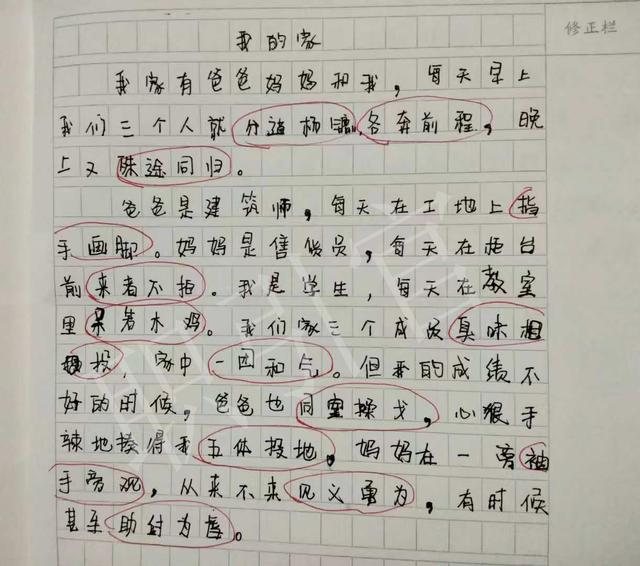 修正栏
我的家
我家有爸爸妈妈和我，每天早上
我们三个人就分道扬镳，各奔前程，晚
上又殊途同归。
爸爸是建筑师，每天在工地上指
手画脚。妈妈是售货员，每天在柜台
前来者不拒。我是学生，每天在教室
里呆若木鸡。我们家三个成员臭味相
投，家中一团和气。但我的成绩不
好的时候，爸爸也同室操戈，心狠手
辣地揍得我五体投地，妈妈在一旁袖
手旁观，从来不来见义勇为，有时候
甚至助纣为虐。